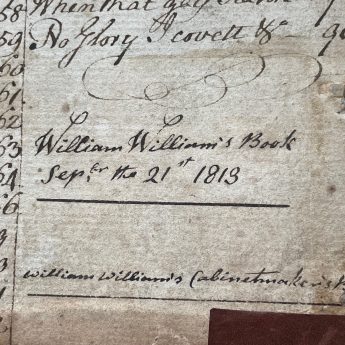 58 When that
59 No Glory I covett &c
60
61
62
63 William William's Book
64 Sepbr the 21st 1813
66
William William's Cabinetmaker's